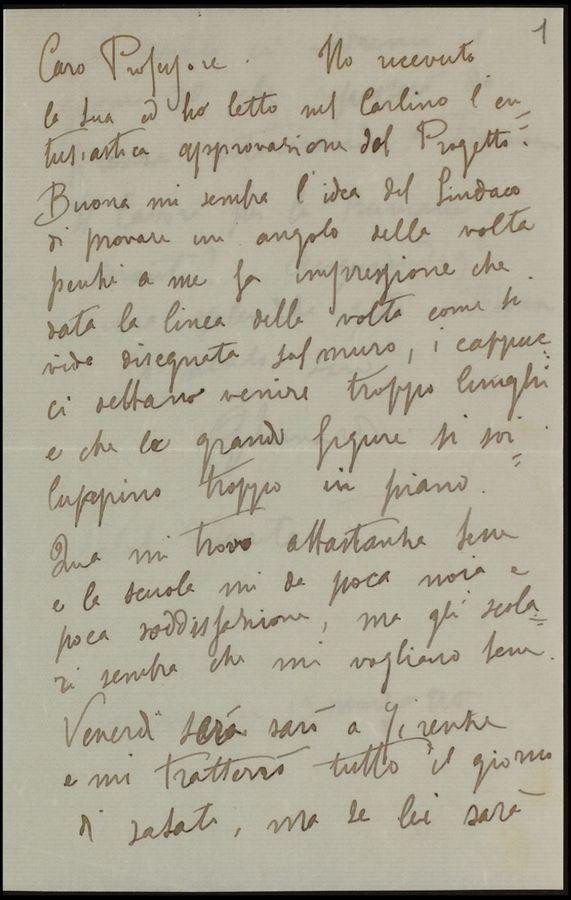 1
Caro Professore. Ho ricevuto
la sua ed ho letto nel Carlino l'en=
tusiastica approvazione del Progetto.
Buona mi sembra l'idea del Sindaco
di provare un angolo della volta
perchè a me fa impressione che
data la linea della volta come si
vide disegnata sul muro, i cappuc=
ci debbano venire troppo lunghi
e che le grandi figure si svi=
luppino troppo in piano.
Qua mi trovo abbastanza bene
e la scuola mi da poca noia e
poca soddisfazione, ma gli scola=
ri sembra che mi vogliano bene.
Venerdì sera sarò a Firenze
e mi tratterrò tutto il giorno
di sabato, ma se lei sarà